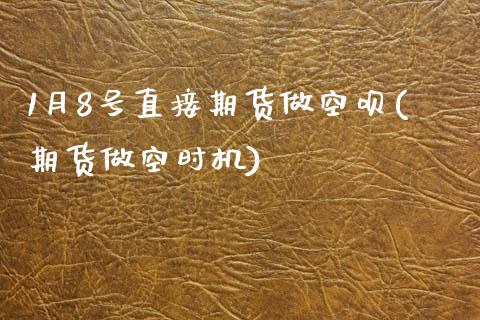 1月8号直接期货做空呗(
期货做空时机)